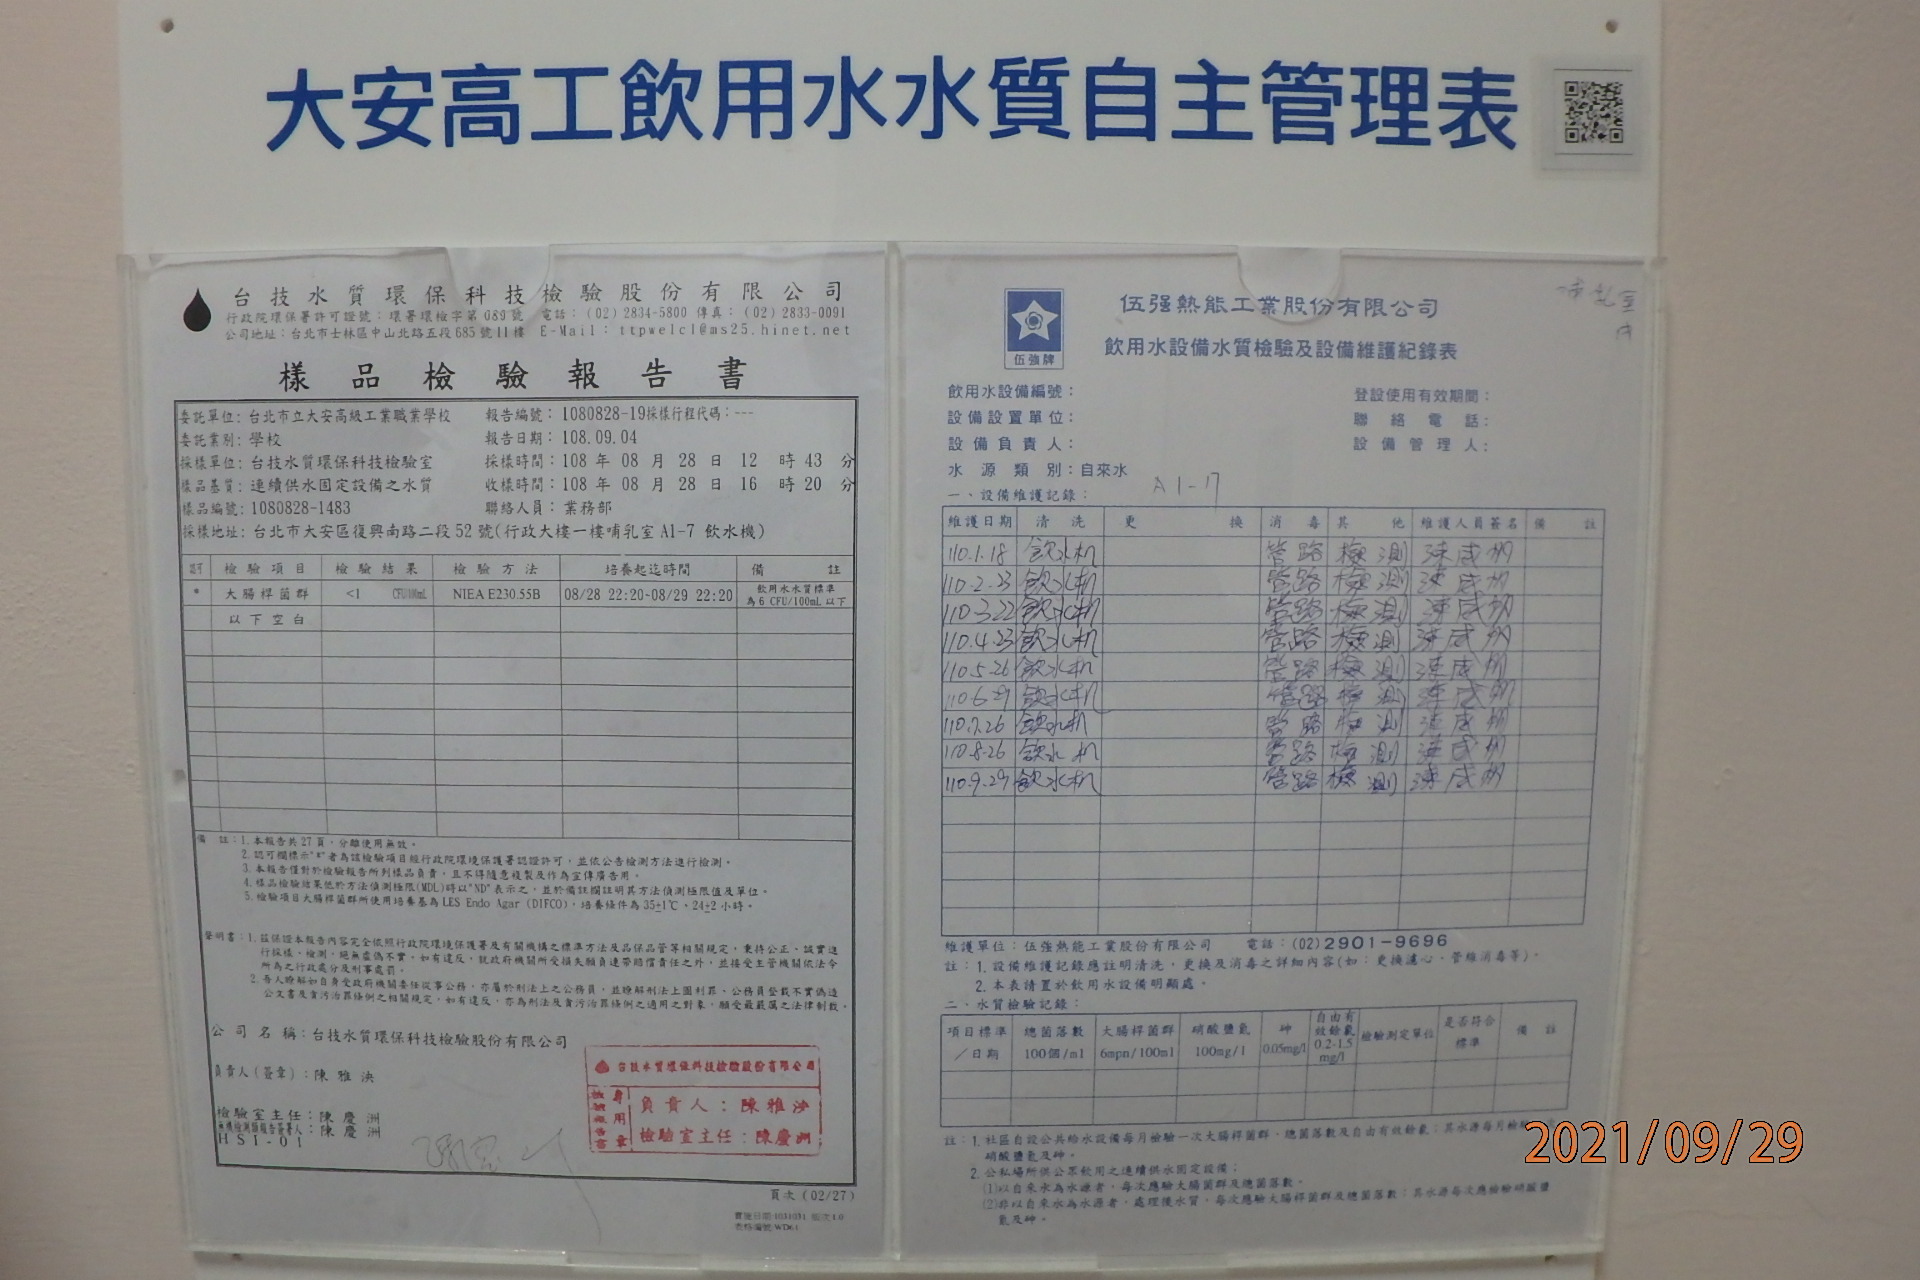 大安高工飲用水水質自主管理表
台技水質環保科技檢驗股份有限公司
行政院環保署許可證號：環署環檢字第089號 電話：(02) 2834-5800 傳真：(02) 2833-0091
公司地址：台北市士林區中山北路五段685號11樓 E-Mail：ttpwelcl@ms25.hinet.net
樣品檢驗報告書
委託單位：台北市立大安高級工業職業學校 報告編號：1080828-19採樣行程代碼：---
委託業別：學校 報告日期：108.09.04
採樣單位：台技水質環保科技檢驗室 採樣時間：108 年 08 月 28 日 12 時 43 分
樣品基質：連續供水固定設備之水質 收樣時間：108 年 08 月 28 日 16 時 20 分
樣品編號：1080828-1483 聯絡人員：業務部
採樣地址：台北市大安區復興南路二段52號(行政大樓一樓哺乳室A1-7 飲水機)
認可 檢驗項目 檢驗結果 檢驗方法 培養起迄時間 備註
* 大腸桿菌群 <1 CFU/100mL NIEA E230.55B 08/28 22:20~08/29 22:20 飲用水水質標準
為6 CFU/100mL以下
以下空白
備註：1.本報告共27頁，分離使用無效。
2.認可欄標示"*"者為該檢驗項目經行政院環境保護署認證許可，並依公告檢測方法進行檢測。
3.本報告僅對於檢驗報告所列樣品負責，且不得隨意複製及作為宣傳廣告用。
4.樣品檢驗結果低於方法偵測極限(MDL)時以"ND"表示之，並於備註欄註明其方法偵測極限值及單位。
5.檢驗項目大腸桿菌群所使用培養基為LES Endo Agar (DIFCO)，培養條件為35±1℃、24±2小時。
聲明書：1.茲保證本報告內容完全依照行政院環境保護署及有關機構之標準方法及品保品管等相關規定，秉持公正、誠實進
行採樣、檢測，絕無虛偽不實，如有違反，就政府機關所受損失願負連帶賠償責任之外，並接受主管機關依法令
所為之行政處分及刑事處罰。
2.吾人瞭解如自身受政府機關委任從事公務，亦屬於刑法上之公務員，並瞭解刑法上圖利罪、公務員登載不實偽造
公文書及貪污治罪條例之相關規定，如有違反，亦為刑法及貪污治罪條例之適用之對象，願受最嚴厲之法律制裁。
公司名稱：台技水質環保科技檢驗股份有限公司
負責人(簽章)：陳雅泱
檢驗室主任：陳慶洲
無機檢測類報告簽署人：陳慶洲
HSI-01
台技水質環保科技檢驗股份有限公司
檢驗報告書
專用章
負責人：陳雅汐
檢驗室主任：陳慶洲
頁次 (02/27)
伍强熱能工業股份有限公司
伍強牌
飲用水設備水質檢驗及設備維護紀錄表
飲用水設備編號： 登設使用有效期間：
設備設置單位： 聯絡電話：
設備負責人： 設備管理人：
水源類別：自來水
A1-17
一、設備維護記錄：
維護日期 清洗 更換 消毒 其他 維護人員簽名 備註
110.1.18 飲水机 管路 檢測 陳威州
110.2.23 飲水机 管路 檢測 陳威州
110.3.22 飲水机 管路 檢測 陳威州
110.4.23 飲水机 管路 檢測 陳威州
110.5.26 飲水机 管路 檢測 陳威州
110.6.29 飲水机 管路 檢測 陳威州
110.7.26 飲水机 管路 檢測 陳威州
110.8.26 飲水机 管路 檢測 陳威州
110.9.29 飲水机 管路 檢測 陳威州
維護單位：伍強熱能工業股份有限公司 電話：(02)2901-9696
註：1.設備維護記錄應註明清洗，更換及消毒之詳細內容(如：更換濾心、管維消毒等)。
2.本表請置於飲用水設備明顯處。
二、水質檢驗記錄：
項目標準／日期 總菌落數 100個/ml 大腸桿菌群 6mpn/100ml 硝酸鹽氮 100mg/l 砷 0.05mg/l 自由有效餘氯 0.2-1.5 mg/l 檢驗測定單位 是否符合標準 備註
註：1.社區自設公共給水設備每月檢驗一次大腸桿菌群、總菌落數及自由有效餘氯；其水源每月檢驗
硝酸鹽氮及砷。
2.公私場所供公眾飲用之連續供水固定設備：
(1)以自來水為水源者，每次應驗大腸菌群及總菌落數。
(2)非以自來水為水源者，處理後水質，每次應驗大腸桿菌群及總菌落數；其水源每次應檢驗硝酸鹽
氮及砷。
2021/09/29